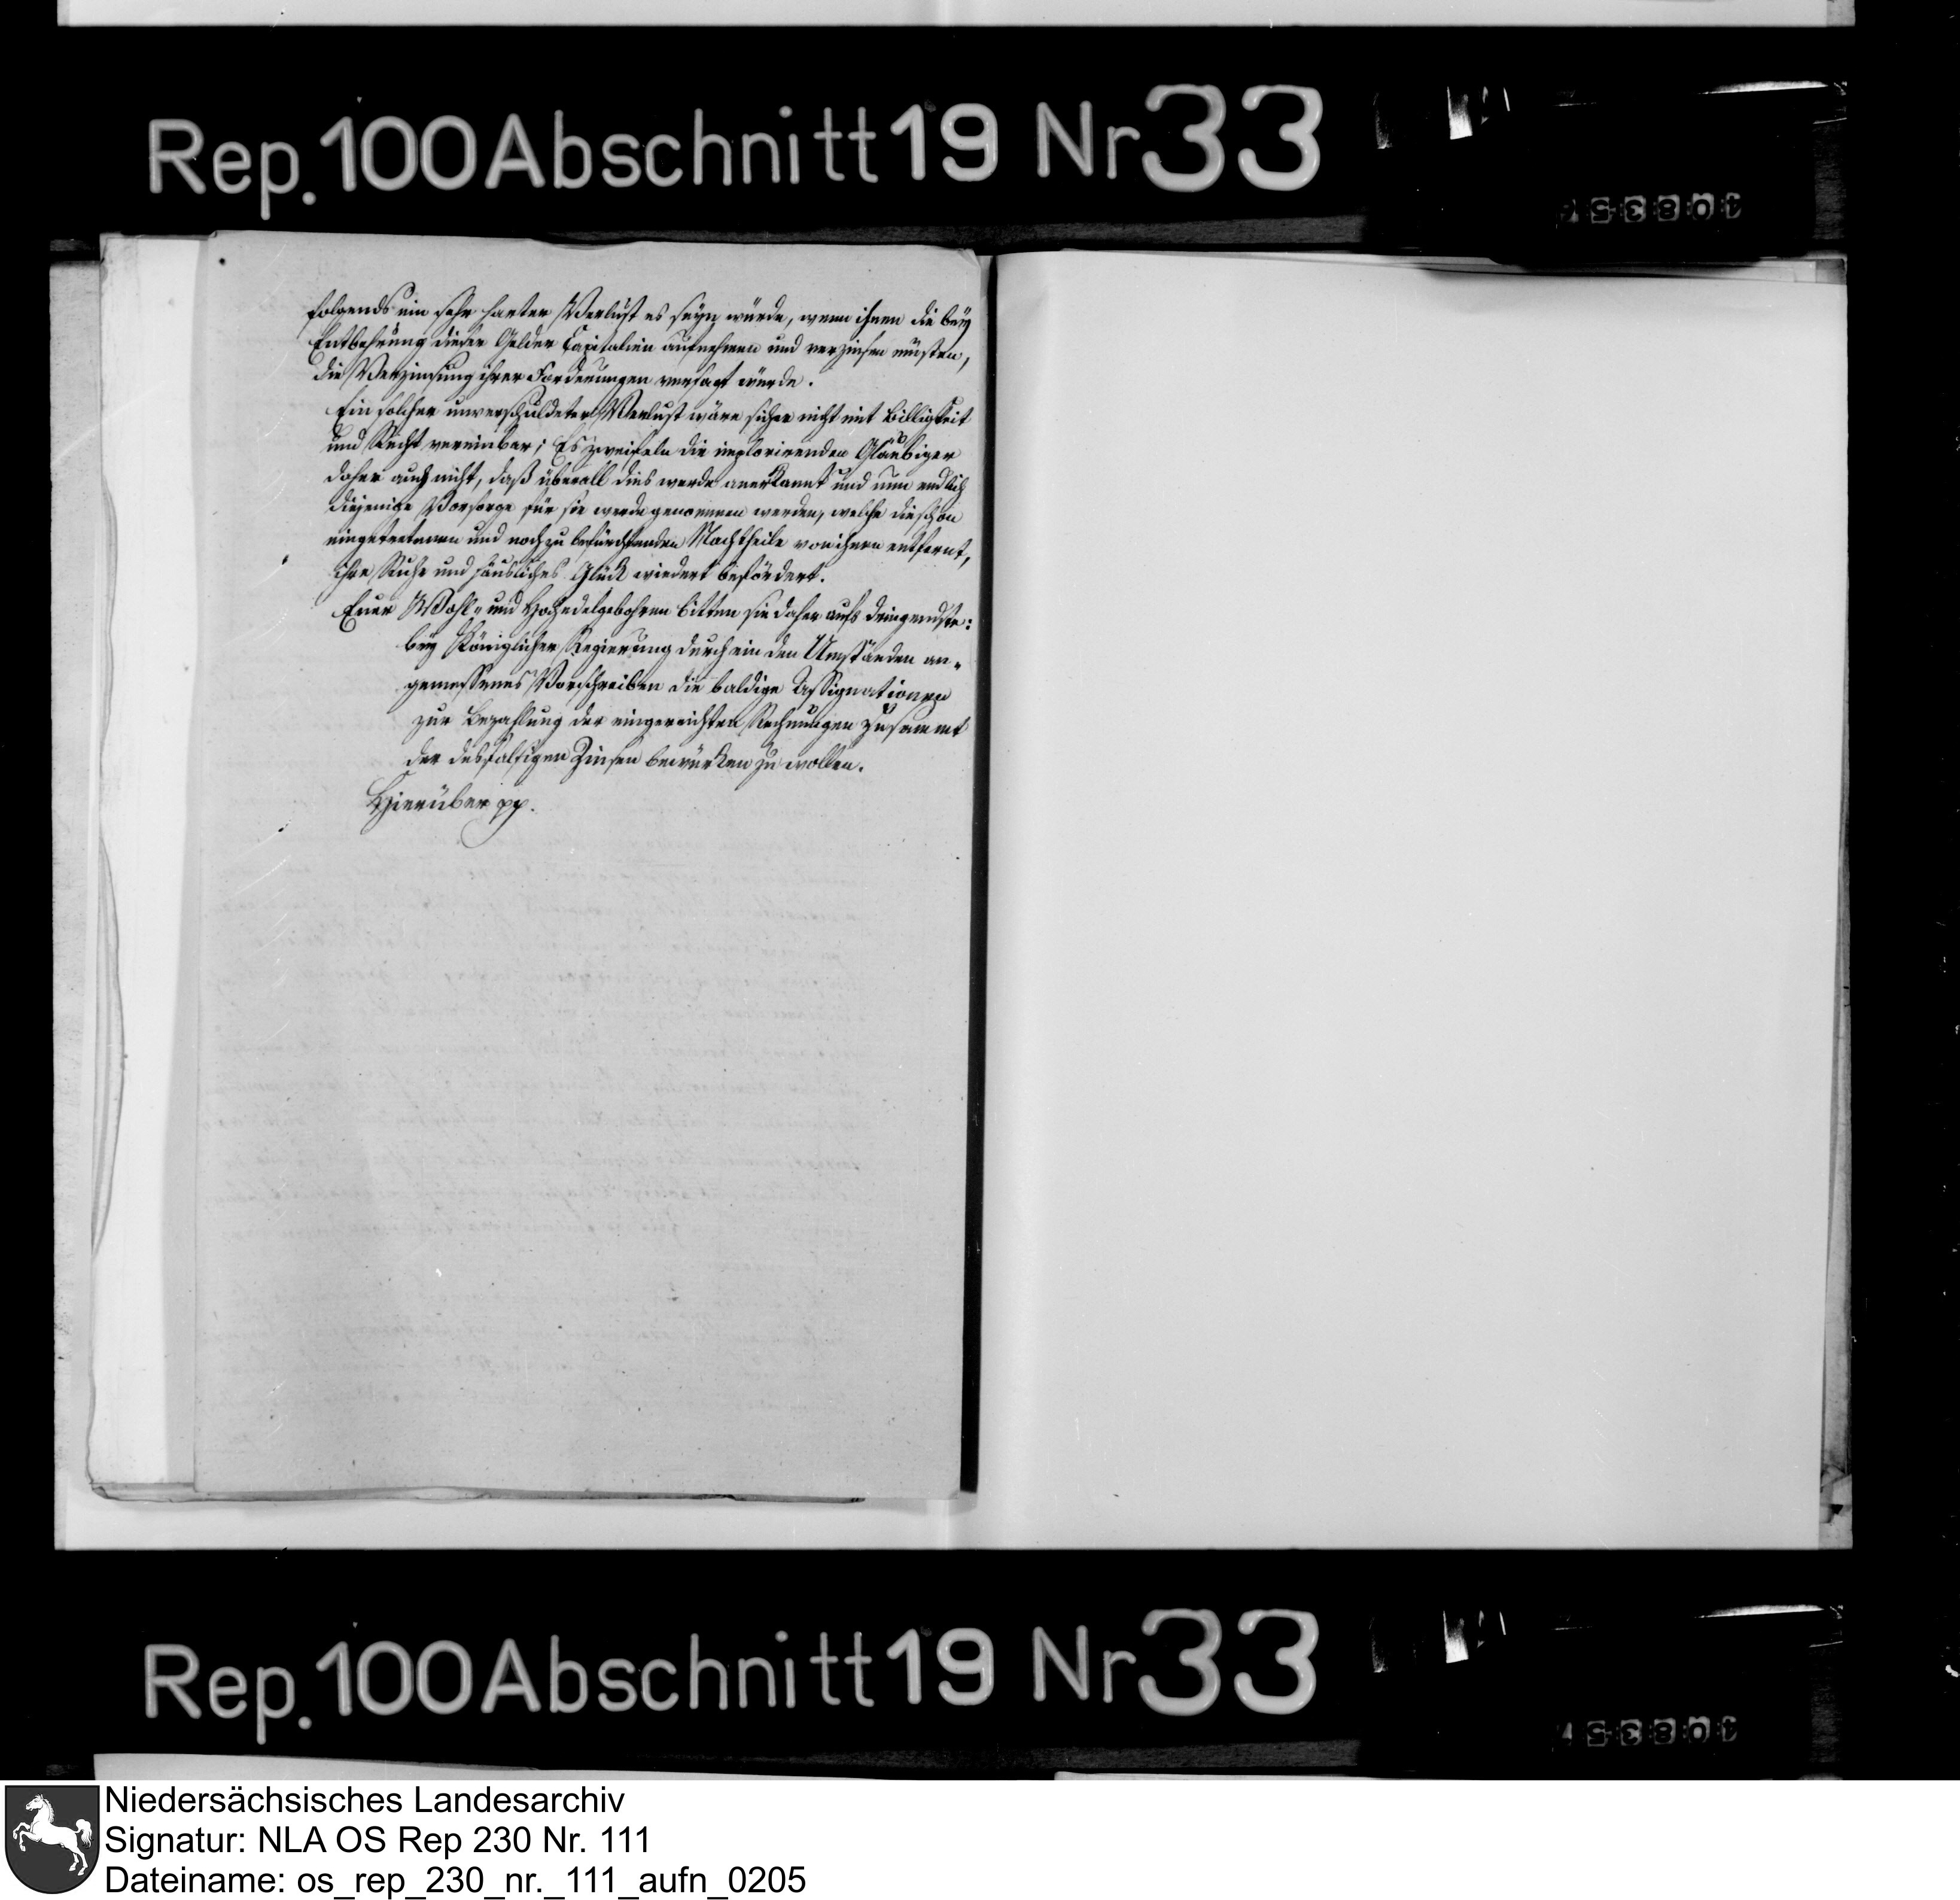 Rep. 100 Abschnitt 19 Nr 33
folgends ein sehr harter Verlust es seyn würde, wenn ihnen die bey
Entbehrung dieser Gelder Capitalien aufnehmen und verzinsen müsten,
die Verzinsung ihrer Forderungen versagt würde.
Ein solcher unverschuldeter Verlust wäre sicher nicht mit Billigkeit
und Recht vereinbar; Es zweifeln die implorirenden Gläubiger
daher auch nicht, daß überall dies werde anerkannt und nun endlich
diejenige Vorsorge für sie werde genommen werden, welche die schon
eingetretenen und noch zu befürchtenden Nachtheile von ihnen entfernt,
ihre Ruhe und häusliches Glück wiedert befördert.
Euer Wohl- und Hochedelgebohren bitten sie daher aufs dringendste:
bey Königlicher Regierung durch ein den Umständen an-
gemessenes Vorschreiben die baldige Assignationen
zur Bezahlung der eingereichten Rechnungen zusammt
der desfalsigen Zinsen bewürken zu wollen.
Hierüber pp.
Rep. 100 Abschnitt 19 Nr 33
Niedersächsisches Landesarchiv
Signatur: NLA OS Rep 230 Nr. 111
Dateiname: os_rep_230_nr._111_aufn_0205